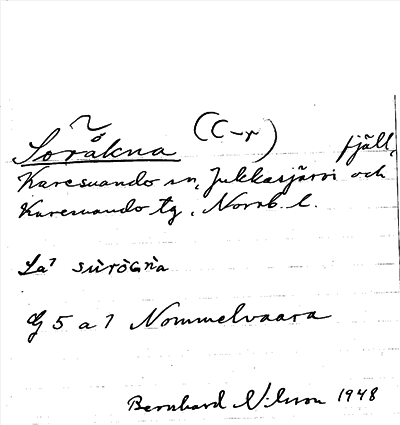 Soråkna (C-r) fjäll,
Karesuando sn, Jukkasjärvi och
Karesuando tg, Norrb. l.
La' süroGna
G 5 a 7 Nommelvaara
Bernhard Nilsson 1948